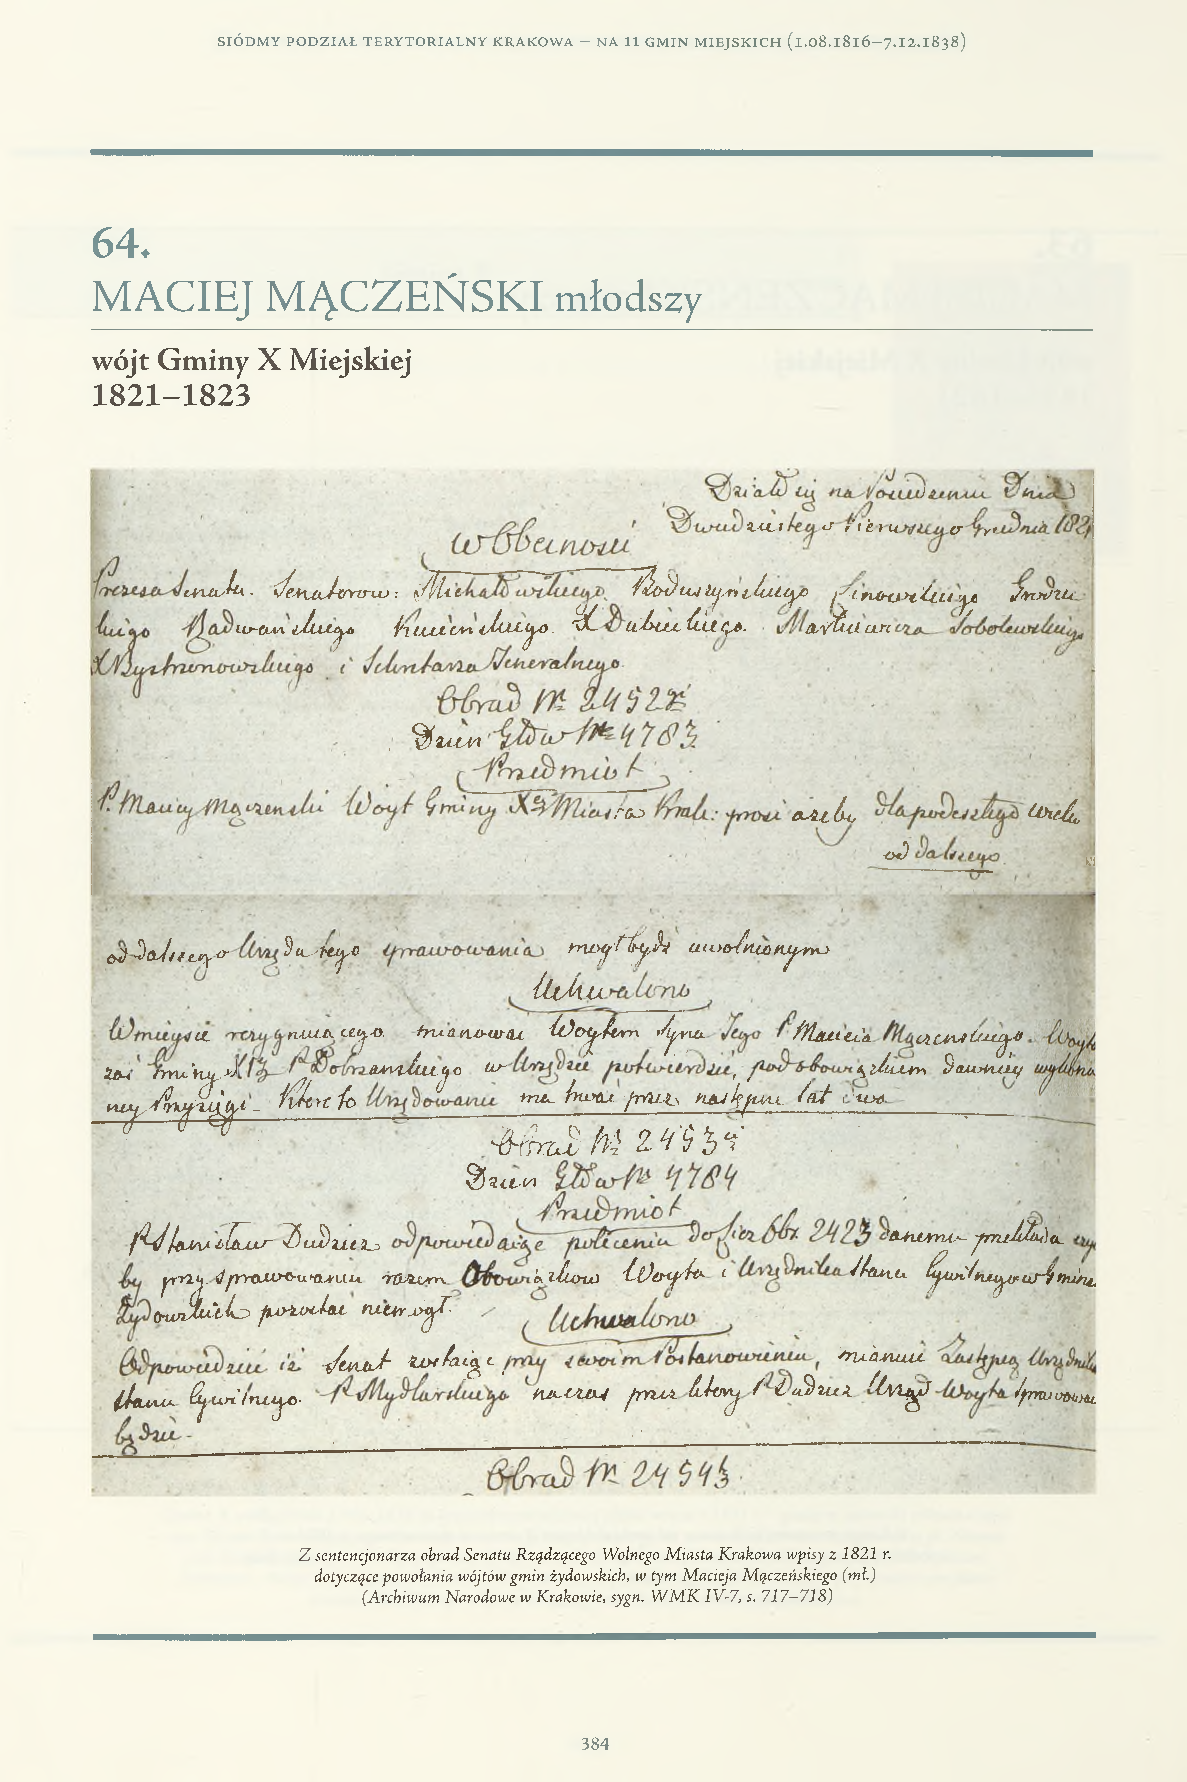 SIÓDMY PODZIAŁ TERYTORIALNY KRAKOWA – NA 11 GMIN MIEJSKICH (1.08.1816–7.12.1838)
64.
MACIEJ MĄCZEŃSKI młodszy
wójt Gminy X Miejskiej
1821–1823
Działo się na Posiedzeniu Dnia
Dwudziestego Pierwszego Grudnia 1821
w Obecności
Prezesa Senatu. Senatorow: Michałowskiego, Roduszyńskiego Linowskiego Grodzic
kiego Radwańskiego Kucieńskiego X Dubieckiego. Markiewicza Sobolewskiego
X Bystrzonowskiego i Sekretarza Jeneralnego
Obrad Nr 2452gi
Dzien: Głow Nr 4783
Przedmiot
P. Maciey Mączenski Woyt Gminy Xey Miasta Krak: prosi azeby dla podeszłego wieku
od dalszego
od dalszego Urzędu tego sprawowania mogł bydź uwolnionym
Uchwalono
W mieysce rezygnuiącego mianować Woytem Syna Jego P. Macieia Mączenskiego. Woyta
zaś Gminy XI P. Dobrzanskiego w Urzędzie potwierdzić, pod obowiązkiem dawniey wykona
ney Przysięgi. Ktore to Urzędowanie ma trwać przez następne lat dwa
Obrad Nr 2453ci
Dzien Głow Nr 4784
Przedmiot
P. Stanisław Dudzicz odpowiedaiąc poleceniu do Licz Obr. 2423 danemu przekłada czy
by przy sprawowaniu razem Obowiązkow Woyta i Urzędnika Stanu Cywilnego w Gminie
Zydowskich pozostać niemogł.
Uchwalono
Odpowiedzieć iż Senat zostaiąc przy swoim Postanowieniu, mianuie Zastępcą Urzędnika
Stanu Cywilnego P. Mydlarskiego na czas przez ktory P. Dudzicz Urząd Woyta sprawować
będzie.
Obrad Nr 2454ty
Z sentencjonarza obrad Senatu Rządzącego Wolnego Miasta Krakowa wpisy z 1821 r.
dotyczące powołania wójtów gmin żydowskich, w tym Macieja Mączeńskiego (mł.)
(Archiwum Narodowe w Krakowie, sygn. WMK IV-7, s. 717–718)
384